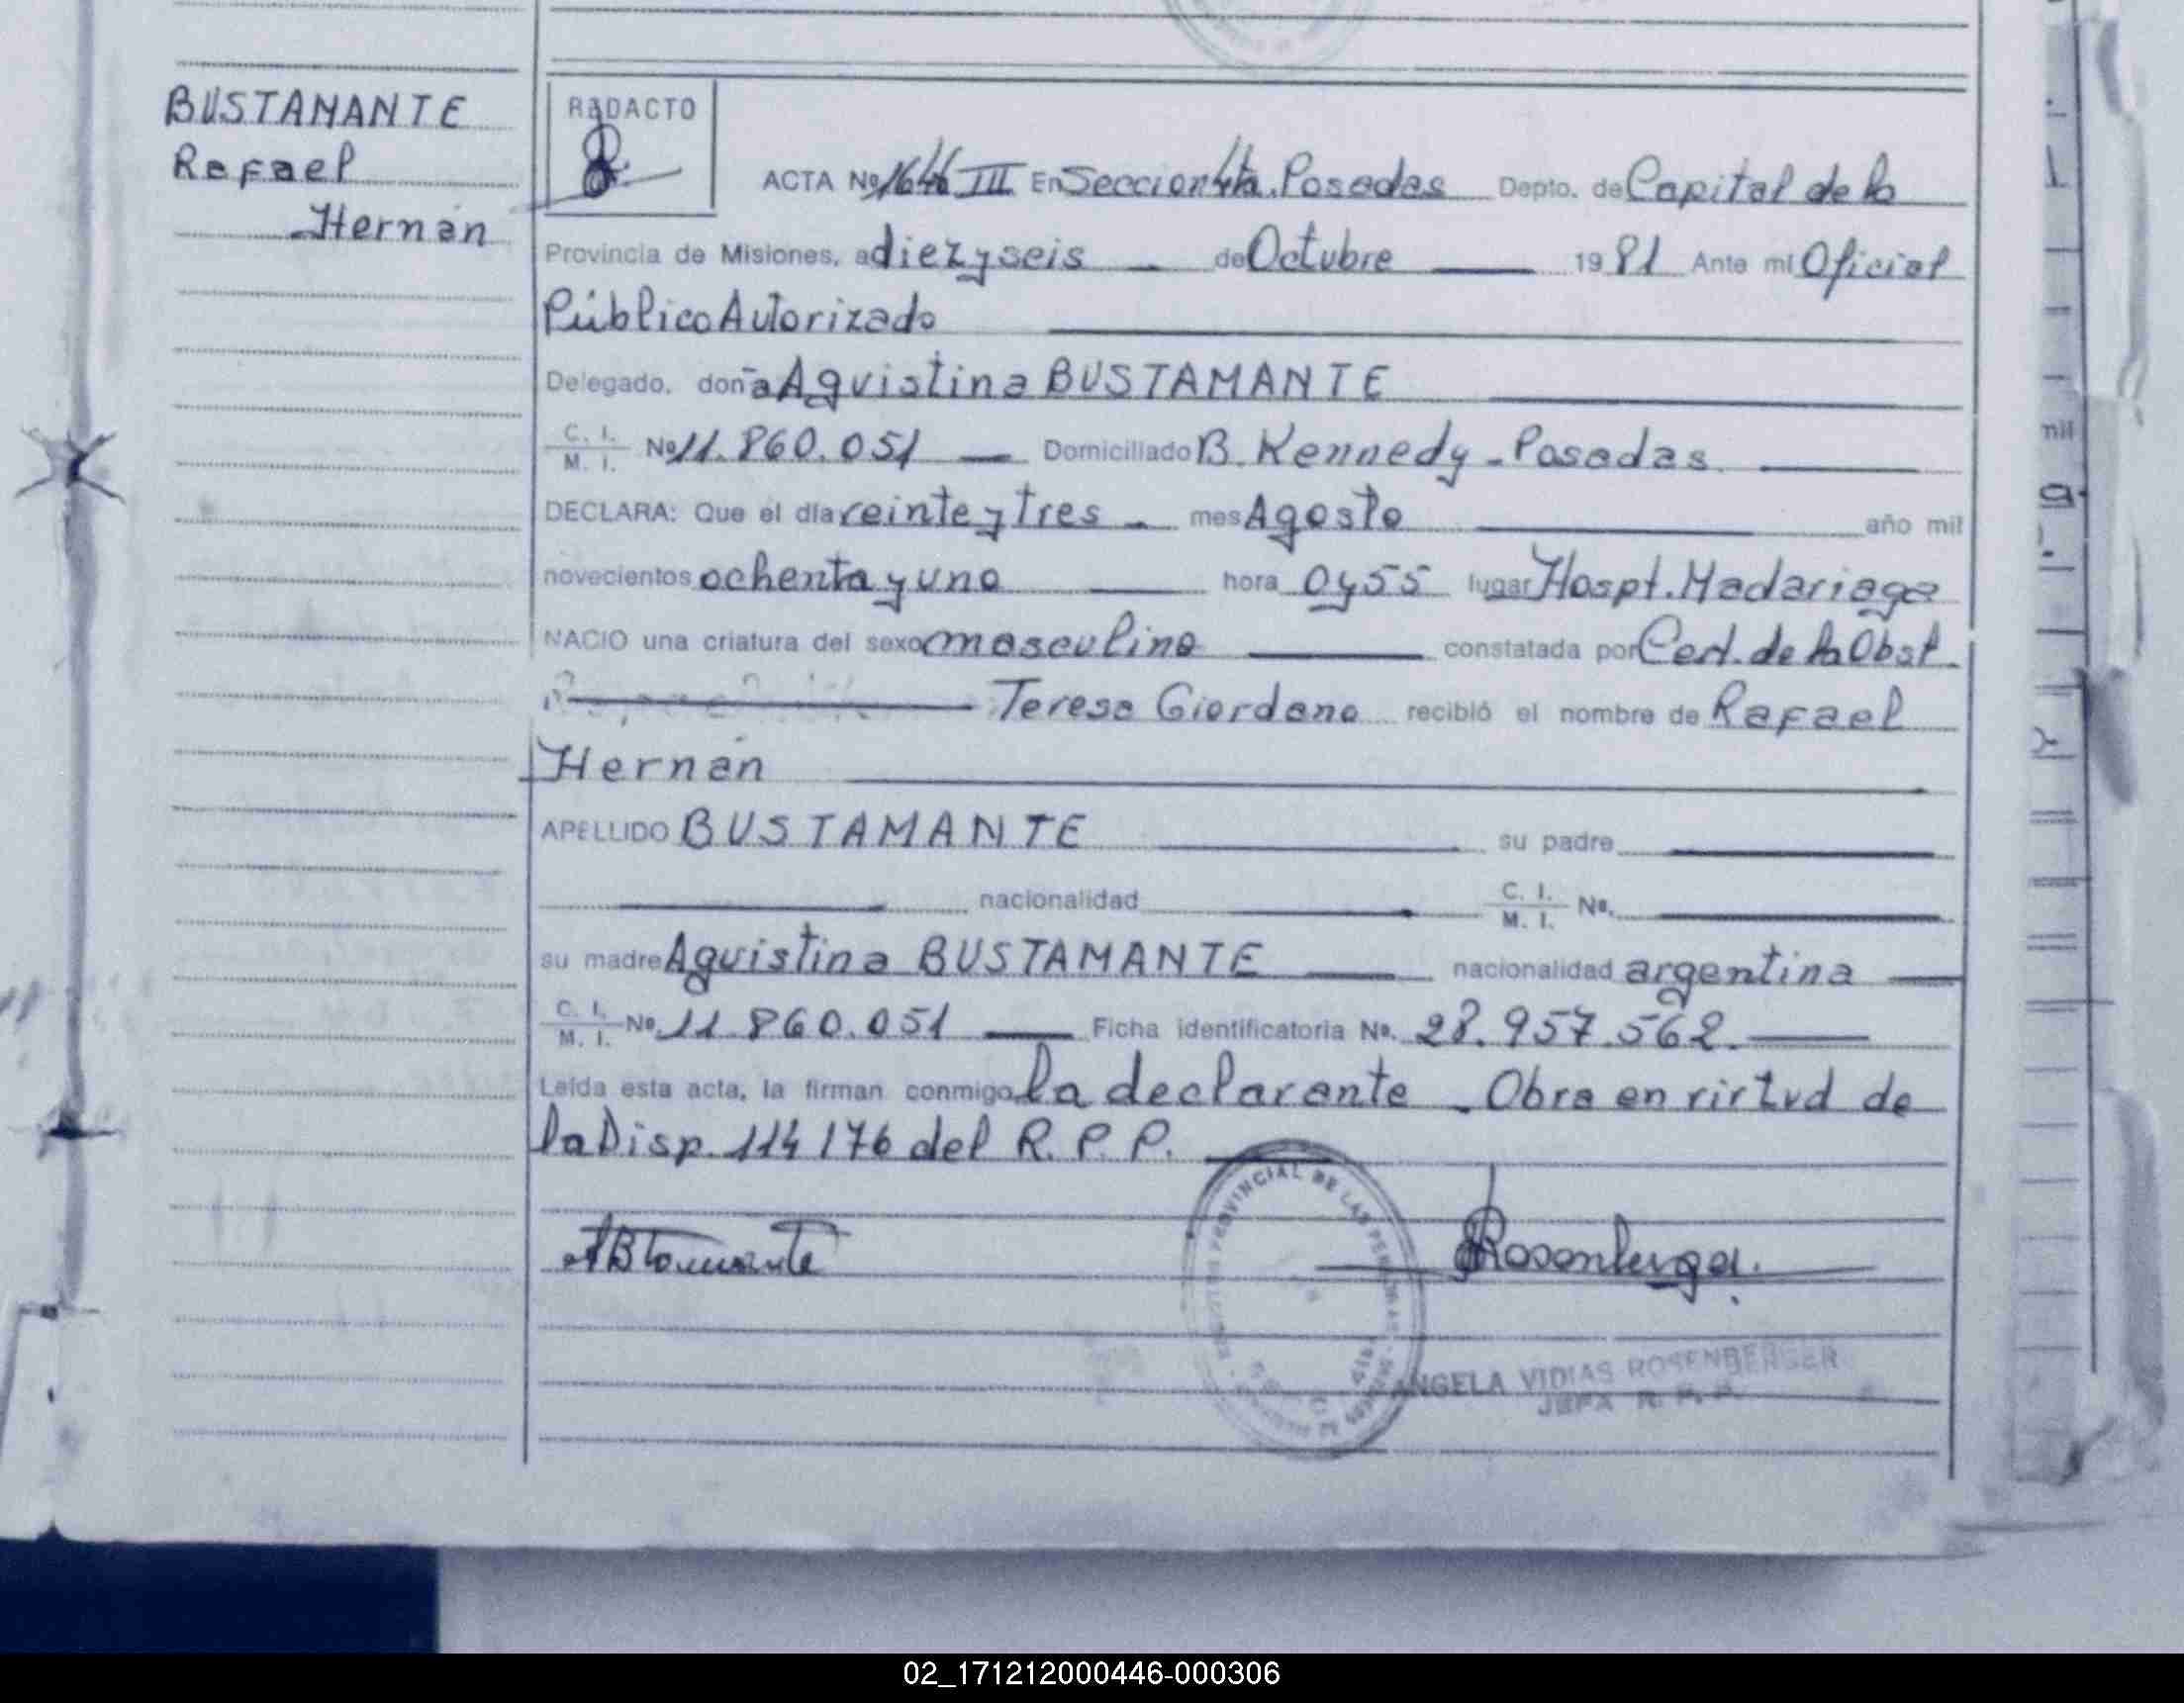 BUSTAMANTE
Rafael
Hernán
REDACTO
ACTA Nº 1646 III En Seccion 4ta. Posadas Depto. de Capital de la
Provincia de Misiones, a diez y seis de Octubre 1981 Ante mi Oficial
Público Autorizado
Delegado, doña Aguistina BUSTAMANTE
C. I. M. I. Nº 11.860.051 Domiciliado B. Kennedy - Posadas
DECLARA: Que el día veinte y tres mes Agosto año mil
novecientos ochenta y uno hora 0y55 lugar Hospt. Madariaga
NACIO una criatura del sexo masculino constatada por Cert. de la Obst.
Teresa Giordano recibió el nombre de Rafael
Hernán
APELLIDO BUSTAMANTE su padre
nacionalidad C. I. M. I. Nº.
su madre Aguistina BUSTAMANTE nacionalidad argentina
C. I. M. I. Nº. 11.860.051 Ficha identificatoria Nº. 28.957.562.
Leída esta acta, la firman conmigo la declarante - Obra en virtud de
la Disp. 114/76 del R. P. P.
ABtamante
Rosenberger.
PROVINCIAL DE LAS PERSONAS
ANGELA VIDIAS ROSENBERGER
JEFA R. P. P.
mil
02_171212000446-000306